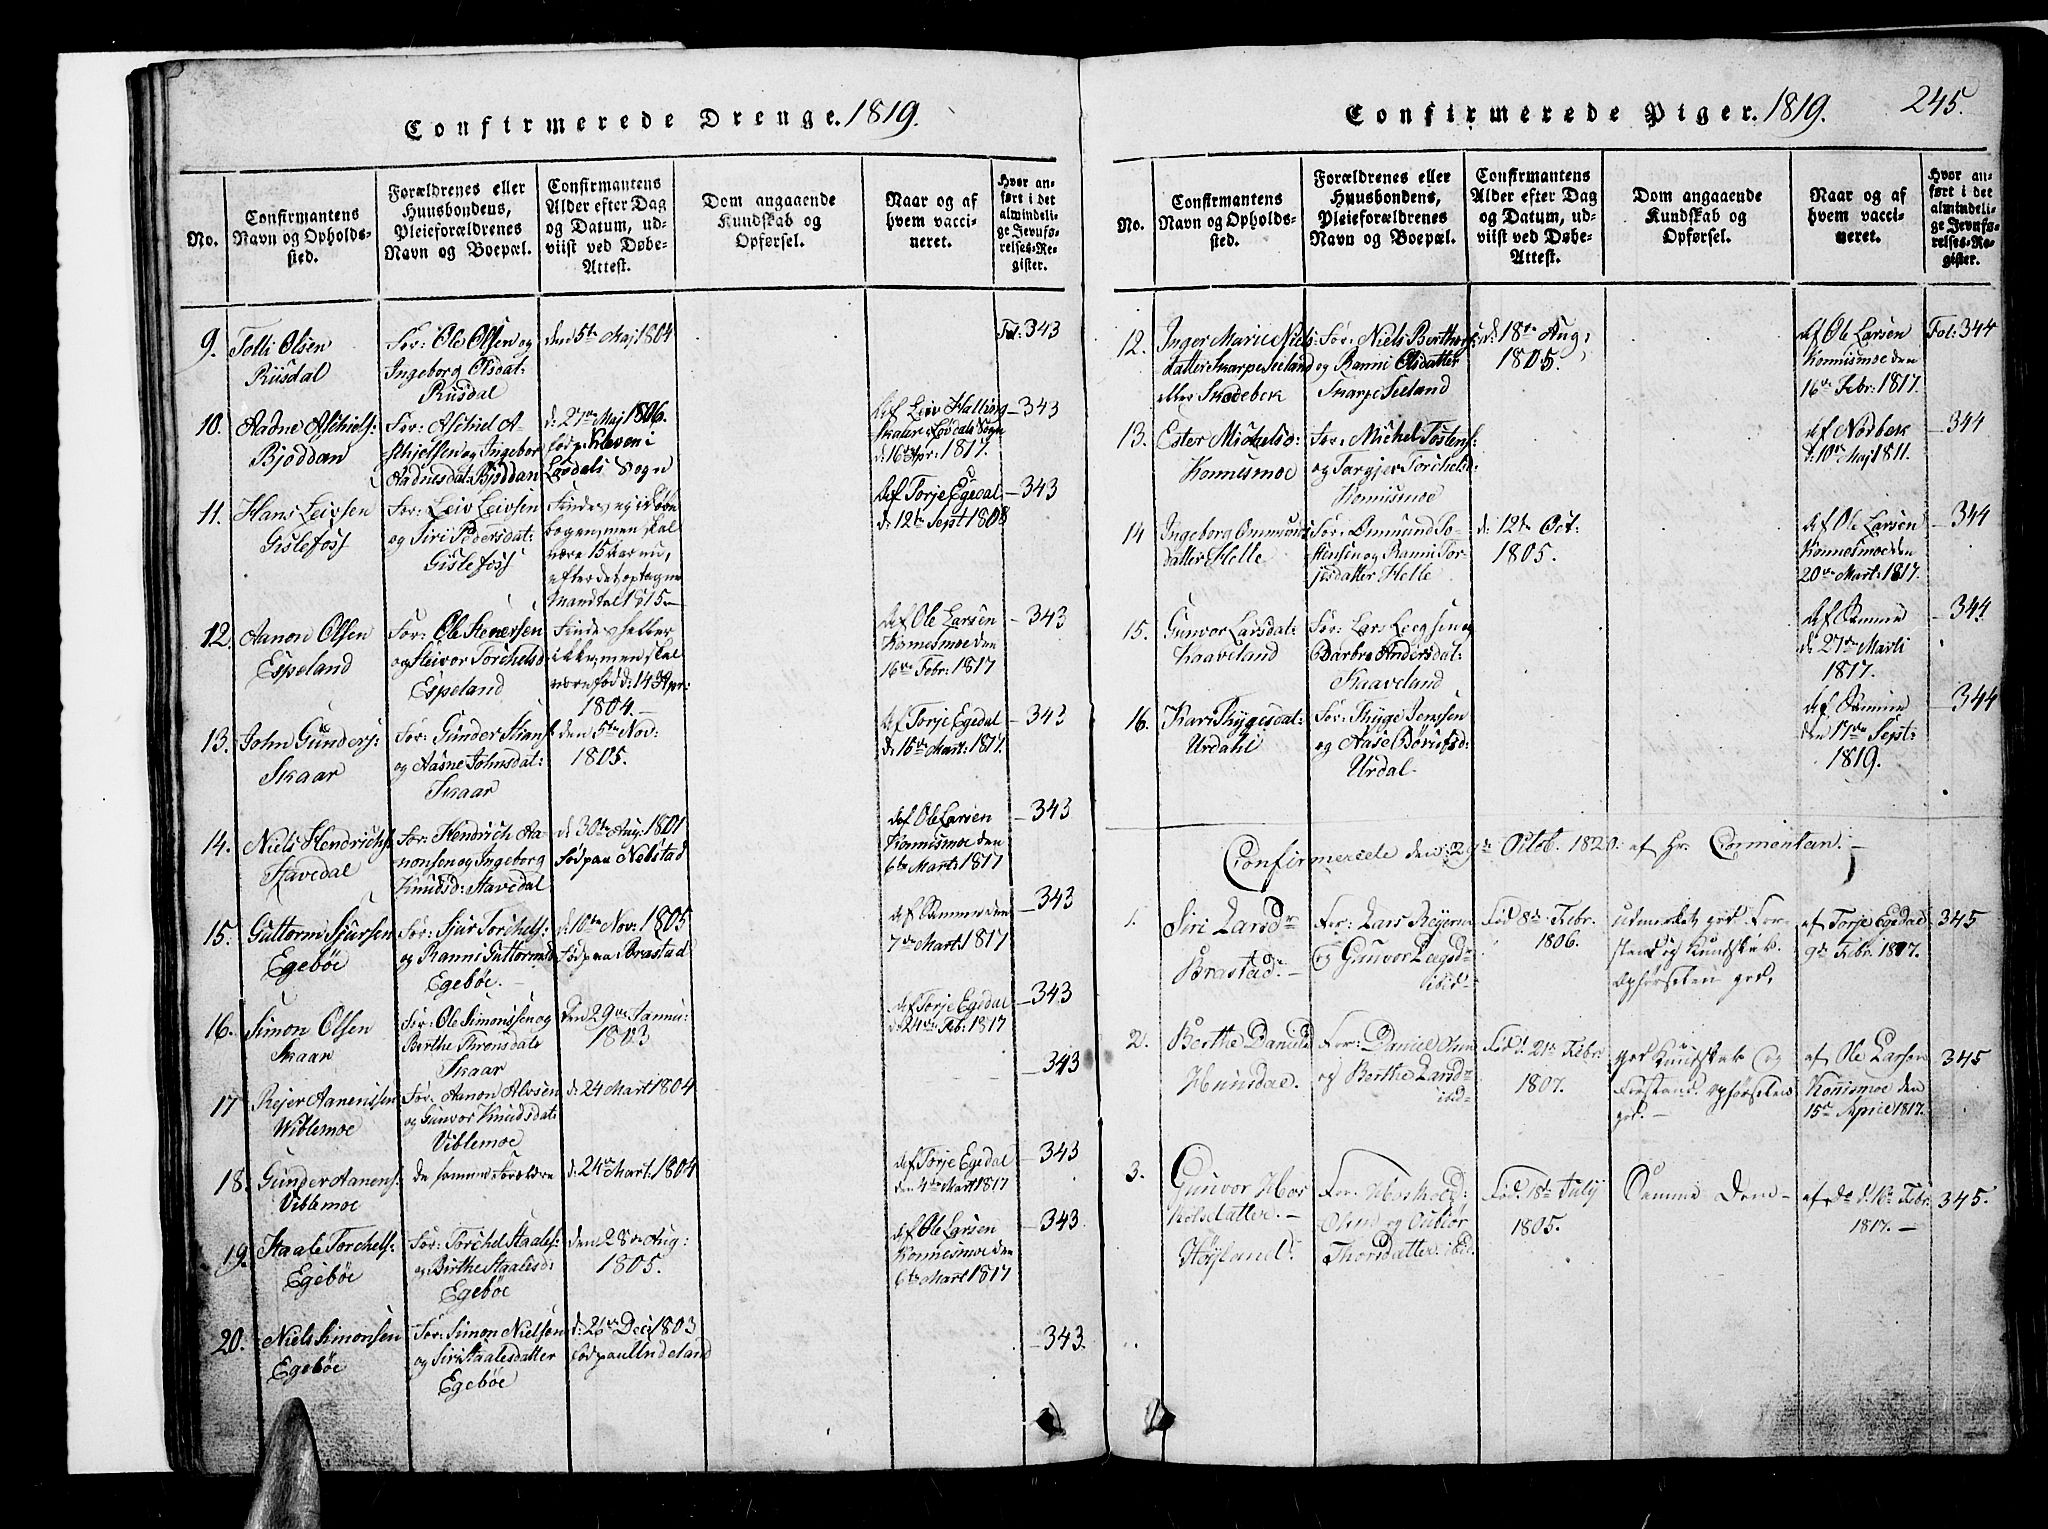 Confirmerede Drenge. 1819.
No.
Confirmantens
Navn og Opholds-
sted.
Forældrenes eller
Huusbondens,
Pleieforældrenes
Navn og Boepæl.
Confirmantens
Alder efter Dag
og Datum, ud-
viist ved Døbe-
Attest.
Dom angaaende
Kundskab og
Opførsel.
Naar og af
hvem vacci-
neret.
Hvor an-
ført i det
almindeli-
ge Jevnfø-
relses-Re-
gister.
9.
Tolli Olsen
Riisdal
For: Ole Olsen og
Ingeborg Olsdat:
Riisdal
den 5te Maj 1804
Fol: 343
10.
Aadne Aschiels:
Bjoddan
For: Aschiel A-
schjelsen og Ingebor
Aadnesdat: Bjoddan
d: 27de Maj 1806.
født p: Eleven i
Løvdals Sogn
Løvdals Sogn
d: 16 Apr: 1817.
343
11.
Hans Leivsen
Gislefoss
For: Leiv Leivsen
og Siri Pedersdat:
Gislefoss
Findes ej i Døbe
bogen, men skal
være 15 Aar nu,
efter det optagne
Mandtal 1815
af Torje Egedal
d: 12te Sept 1808
343
12.
Aanon Olsen
Espeland
For: Ole Stenersen
og Steivor Torchelsd
Espeland
Findes heller
ikke, men skal
være fød d: 14 Apr:
1804.
af Ole Larsen
Konnesmoe den
16de Febr: 1817
343
13.
John Gunders:
Skaar
For: Gunder
og Aasne Johnsdat:
Skaar
den 5te Nov:
1805.
af Torje Egedal
d: 15de Mart: 1817.
343
14.
Niels Hendrichs
Stavedal
For: Hendrich Aa-
nonsen og Ingeborg
Knudsd: Stavedal
d: 30te Aug: 1801
fød paa Nebstad
af Ole Larsen
Konnismoe den
6te Marts 1817
343
15.
Guttorm Sjursen
Egebøe
For: Sjur Torchels:
og Ranni Guttormsd
Egebøe.
d: 10te Nov: 1805
fød paa: Brastad
af Samme den
7de Mart: 1817
343
16.
Simon Olsen
Skaar
For: Ole Simonssen og
Berthe
Skaar
den 29de Janu:
1803
af Torje Egedal
d: 24de Feb: 1817
343
17
Rejer Aanenssen
Wiblemoe
For: Aanon Alvsen
og Gunvor Knudsdat:
Viblemoe
d: 24 Mart 1804
343
18.
Gunder Aanens:
Viblemoe
de samme Forældre
d: 24de Mart: 1804
af Torje Egedal
den 4de Mart 1817
343
19.
Staale Torchels:
Egebøe
For: Torchel Staales:
og Birthe Staalesd:
Egebøe
den 28de Aug:
1805.
af Ole Larsen
Konnesmoe den
6te Mart 1817
343
20.
Niels Simonsen
Egebøe
For: Simon Nielsen
og Siri Staalesdatter
Egebøe
d: 26de Dec: 1803
fød paa Undeland
343.
Confirmerede Piger. 1819.
245.
No.
Confirmantens
Navn og Opholds-
sted.
Forældrenes eller
Huusbondens,
Pleieforældrenes
Navn og Boepæl.
Confirmantens
Alder efter Dag
og Datum, ud-
viist ved Døbe-
Attest.
Dom angaaende
Kundskab og
Opførsel.
Naar og af
hvem vacci-
neret.
Hvor an-
ført i det
almindeli-
ge Jevnfø-
relses-Re-
gister.
12.
Inger Marie Niels
datter Skarpeseeland
eller Skodebek
For: Niels Berthels:
og Ranni Olsdatter
Skarpeseeland
d: 18de Aug:
1805.
af Ole Larsen
Konnismoe den
16de Febr: 1817.
Fol: 344
13.
Ester Michelsd:
Konnismoe
For: Michel Tostens:
og Targjer Torchelsd:
Konnismoe
af Nodberk
d: 10de Maj 1811.
344
14
Ingeborg Ommunds
datter Helle
For: Ommund To-
stensen og Ranni Tor-
jesdatter Helle
d: 12te Oct:
1805.
af Ole Larsen
Konnesmoe den
20de Mart: 1817.
344
15.
Gunvor Larsdat:
Kaaveland
For: Lars Leegsen og
Barbro Andersdat:
Kaaveland
af Samme
d: 27de Marti
1817.
344.
16.
Kari Thygesdat:
Urdahl
For: Thyge Jenssen
og Aase Børufsd:
Urdal.
af Samme
den 17de Sept:
1819.
344
Confirmerede den 29de Octob. 1820 af Hr. Cormontan.
1.
Siri Larsdr
Brastad.
For: Lars Reiersen
og Gunvor Leegsdr
ibid
Fød 8de Febr.
1806.
udmerket god For-
stand og Kundskab.
Opførselen god.
af Torje Egedal
9de Febr. 1817.
345
2.
Berthe Danielsd
Hunsdal.
For: Daniel Olsen
og Berthe Larsdr
ibid
Fød d. 21de Febr.
1807.
god Kundskab og
Forstand. Opførselen
god.
af Ole Larsen
Konnismoe den
15de Apriil 1817.
345
3.
Gunvor Hor
kelsdatter.
Høyland.
For: Horkeld:
Olsen og Gubiør
Thorsdatter ibid.
Fød. 18de July
1805.
Samme Dom
af Do d. 10de Febr.
1817.
345.